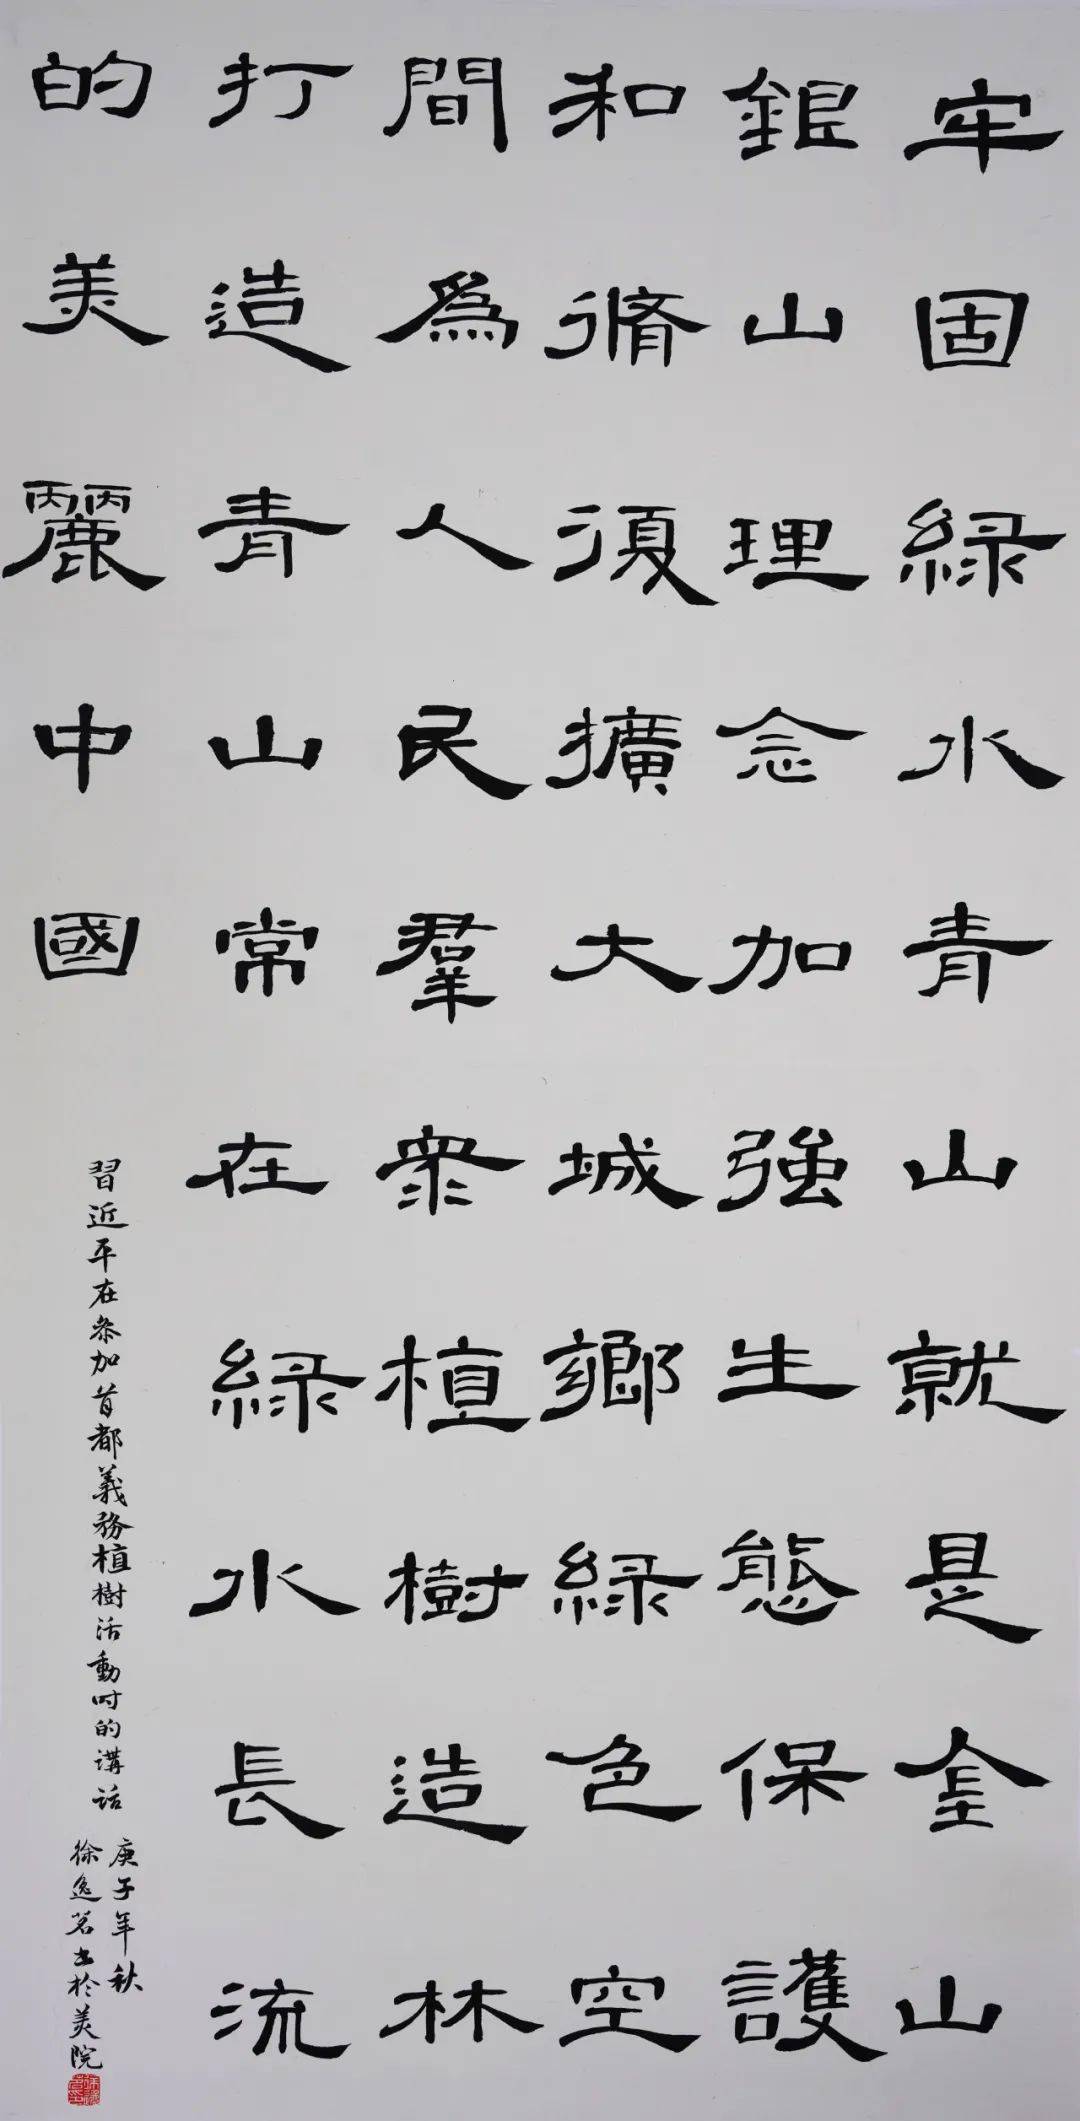 牢固綠水青山就是金山
銀山理念加強生態保護
和脩復擴大城鄉綠色空
間為人民羣眾植樹造林
打造青山常在綠水長流
的美麗中國
習近平在參加首都義務植樹活動時的講話
庚子年秋
徐逸茗書於美院